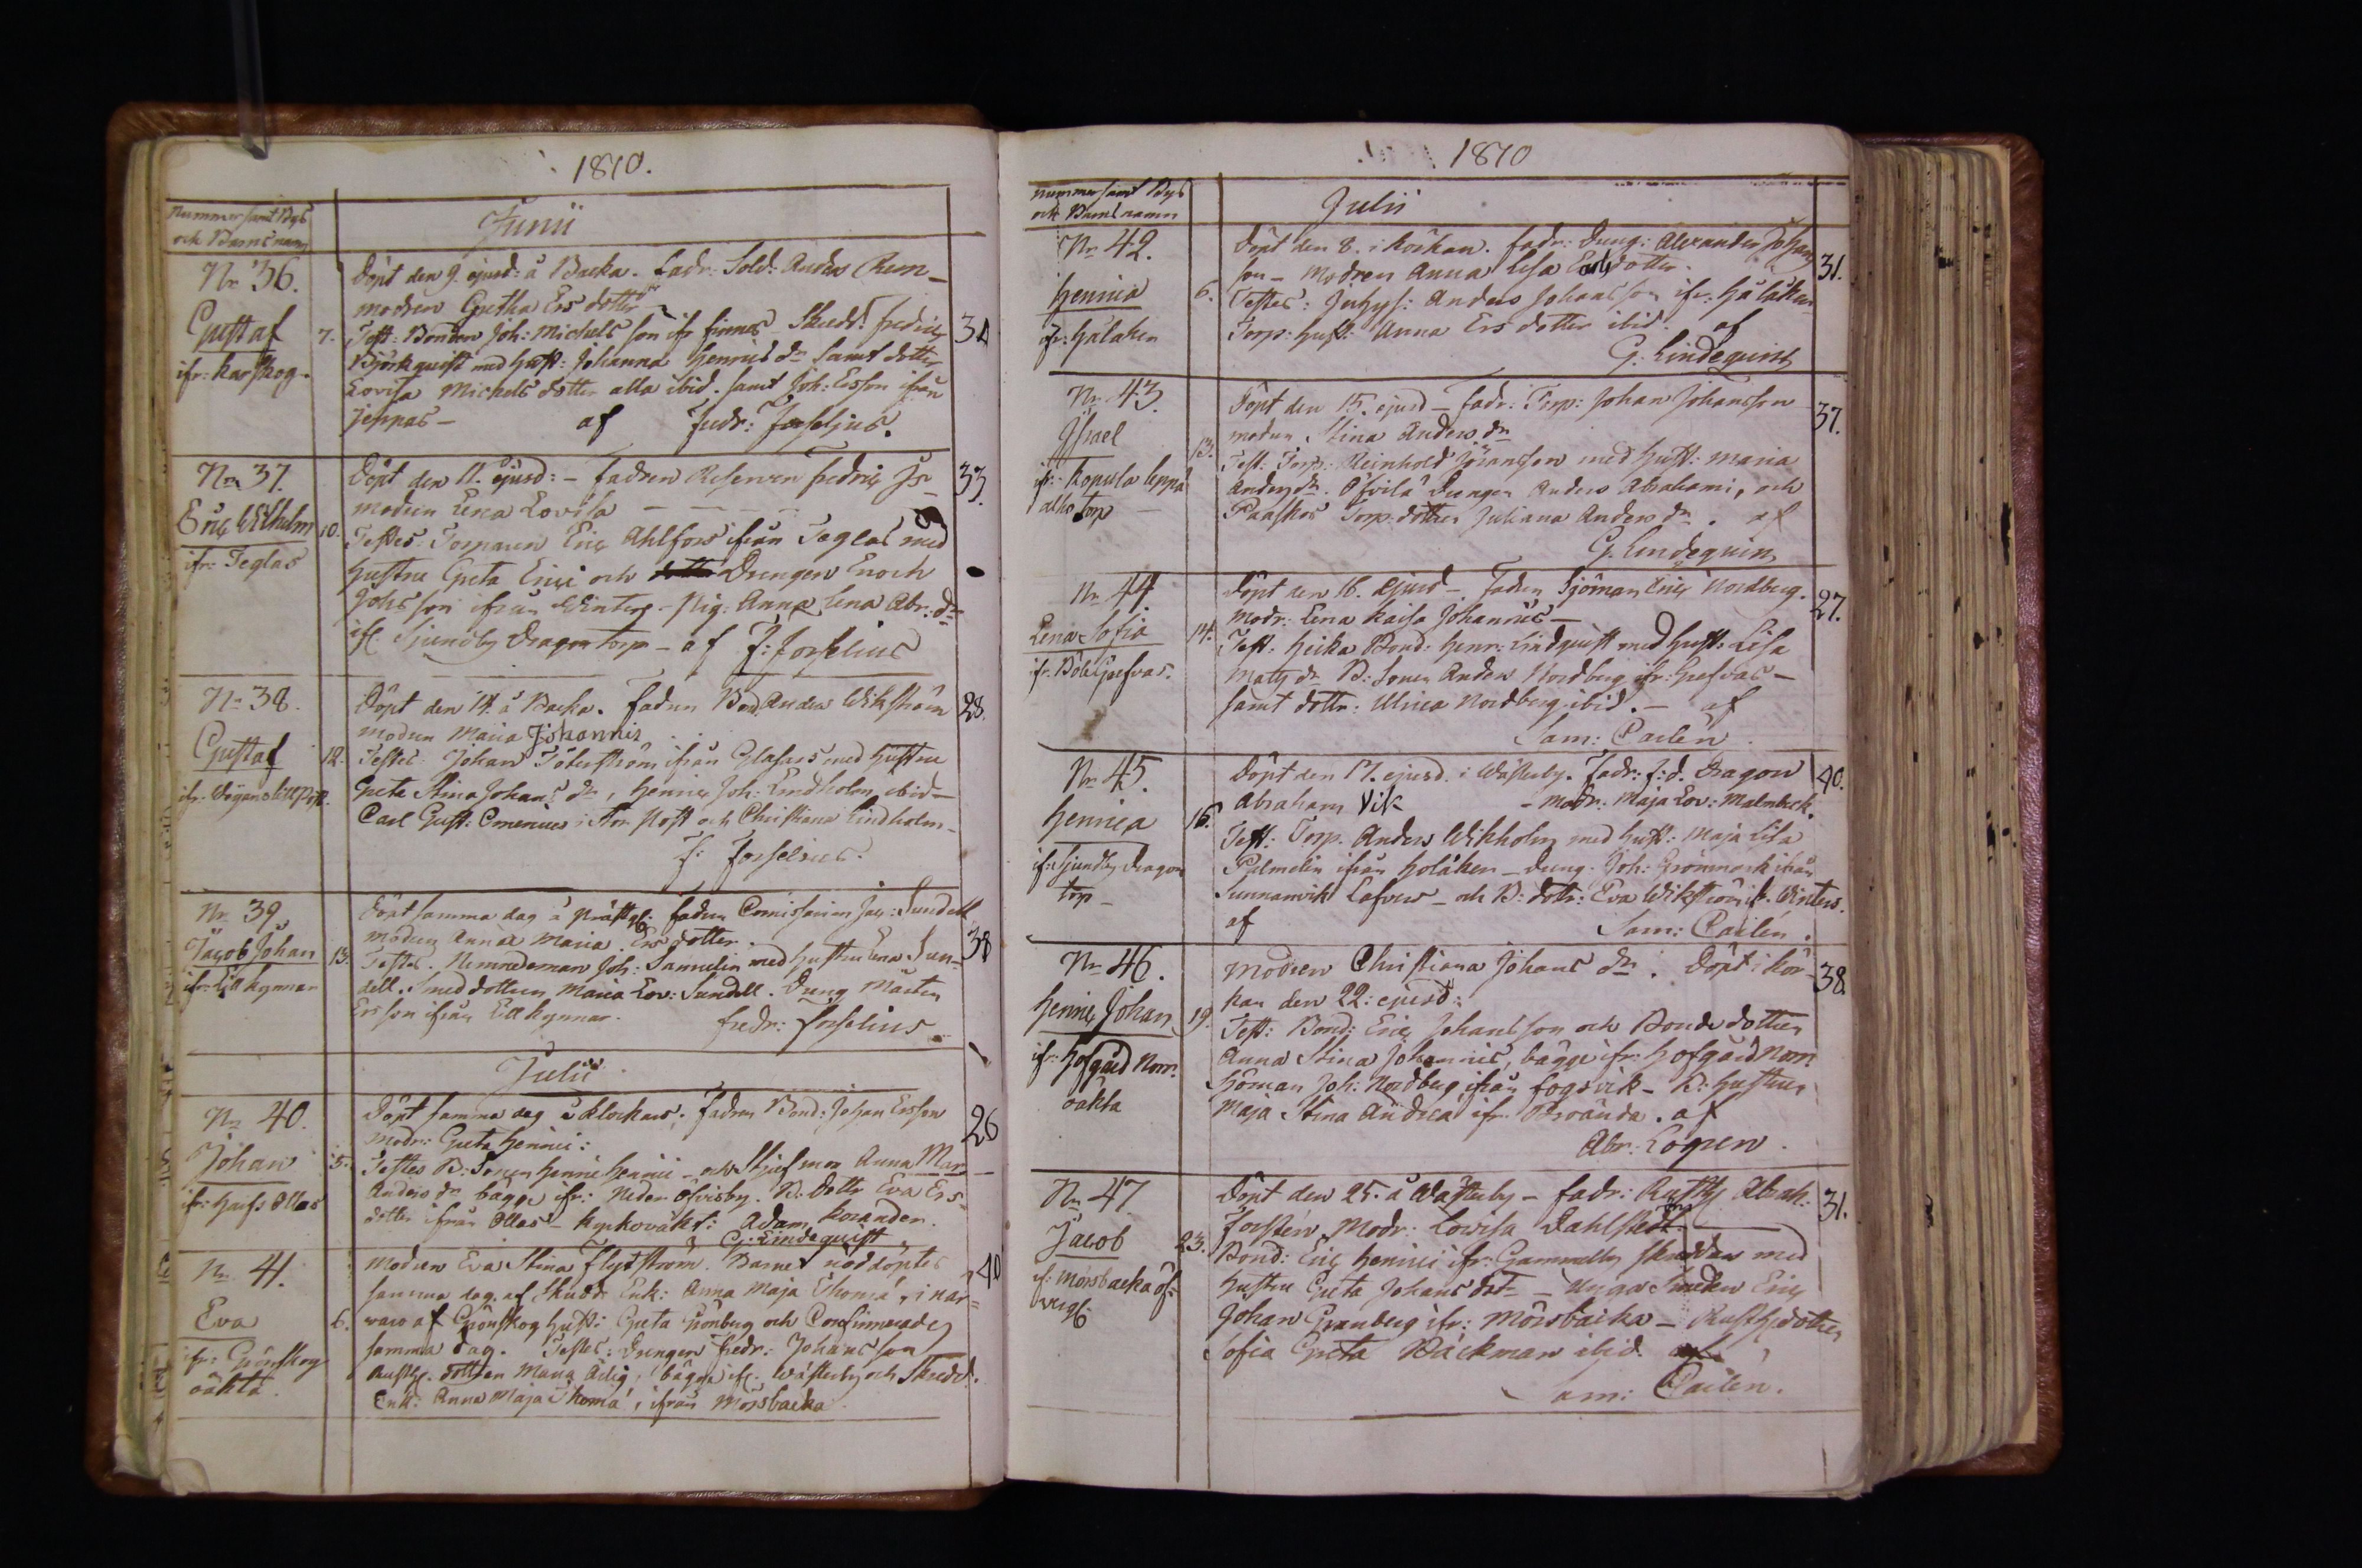 1810.
Nummer samt Bys
och Barns namn
Junii
Nr 36.
Gustaf
ifr: Karskog.
7.
Döpt den 9. ejusd: å Backa. Fadr: Sold: Anders Rem_
modren Gretha Ers dotter
Test: Bonden Joh: Michels son ifr Finnas Skredd: Fredric
Björkquist med Hust: Johanna Henrics dr samt dotter
Lovisa Michels dotter alla ibid. samt Joh: Ersson ifrån
Jeppas - af Fredr: Forselius.
Nr 37.
Eric Wilhelm
ifr: Teglas
10.
Döpt den 11. ejusd: - Fadren Reserven Fredric
33.
modren Lena Lovisa
Testes: Torparen Eric Ahlfors ifrån Teglas med
Hustru Greta Erici och Drengen Enoch
Johs son ifrån Winters - Pig: Anna Lena Abr: dr
Sjundby Dragontorp - af F: Forselius
Nr 38.
Gustaf
12.
28.
Döpt den 14. å Backa. Fadren Bond. Anders Wikström
modren Maria Johannis
Testes: Johan Söderström ifrån Glasars med Hustru
Greta Stina Johans dr, Henric Joh: Lindholm ibid -
Carl Gust: i Stor och Christiana Lindholm -
F: Forselius.
Nr 39
Jacob Johan
ifr: Lill Kynnar
13.
38
Döpt samma dag å Prästg: Fadren Comissarien Jac: Sundell
modren Anna Maria Ers dotter.
Testes. Nemndeman Joh: Sannelin med Hustru Lena Sun-
dell. med dottren Maria Lov: Sundell. Dreng Mårten
Ersson ifrån Lill Kynnar. Fredr: Forselius
Julii
Nr 40.
Johan
ifr: Ollas
5.
26
Döpt samma dag å Klockars; Fadren Bond: Johan Ersson
Modr: Greta Henrici:
Testes B: Sonen Henric Henrici - och Stjufmor Anna Mar
Anders dr bägge ifr: Neder Ölvisby. B: Dottr Eva Ers-
dotter ifrån Ollas - Kyrkoväkt: Adam Korander.
G: Lindequist
Nr 41.
Eva
ifr: Grönskog
oäkta.
6.
40
Modren Eva Stina Flytström. Barnet nöddöptes
samma dag. af Skredd: Enk: Anna Maja Thomæ, i när=
waro af Grönskog Hust: Greta Grönberg och Confirmerades
samma dag. Testes: Drengen Fredr: Johans son
Rusth. dottren Maria bägge ifr. Wästerby och Skredd.
Enk: Anna Maja Thomæ, ifrån Mörsbacka
1810
Nummer samt Bys
och Barns namn
Julii
Nr 42.
Henrica
ifr: Hålaken
6.
31.
Döpt den 8. i Körkan. Fadr: Dreng: Alexander Johans
son - Modren Anna Lisa dotter.
Testes: Anders Johansson ifr: Hålaken
Torp: Hust: Anna Ers dotter ibid. af
G: Lindequist
Nr 43.
Israel
ifr: Kopula
torp
13.
37.
Döpt den 15. ejusd - Fadr: Torp: Johan Johansson
modren Stina Anders dr
Test: Torp: Reinhold Göransson med Hust: Maria
Anders dr. Drengen Anders Abrahami, och
Torp: dottren Juliana Anders dr. af
G: Lindequist
Nr 44.
Lena Sofia
14.
27.
Döpt den 16. ejusd - Fadren Sjöman Eric Nordberg.
Modr: Lena Kaisa Johannis -
Test: Heika Bond: Henr: Lindquist med Hust: Lisa
Mats dr B: Sonen Anders Nordberg ifr: Grefvas -
samt dottr: Ulrica Nordberg ibid. - af
Sam: Carlén
Nr 45.
Henrica
ifr: Sjundby Dragon
torp -
16.
40.
Döpt den 17. ejusd. i Wästerby. Fadr: f: d. Dragon
Abraham Vik - Modr: Maja Lov: Malmbeck.
Test: Torp. Anders Wikholm med Hust: Maja Lisa
Palmelin ifrån Holåken - Dreng. Joh: Grönmark ifrån
Sunnanvik Lafvers - och B: dotr: Eva Wikström ifr. Winters.
af Sam: Carlén.
Nr 46.
Henric Johan
ifr: Hofgård Norr.
oäkta
19.
38.
Modren Christiana Johans dr. Döpt i Kör-
kan den 22: ejusd:
Test: Bond: Eric Johansson och Bonde dotter
Anna Stina Johannis, bägge ifr: Hofgård Norr.
Sjöman Joh: Nordberg ifrån Fogdvik - B: Hustrun
Maja Stina Andrea ifr. Broända. af
Abr: Logren.
Nr 47.
Jacob
ifr: Mörsbacka öf=
vergl:
23.
31.
Döpt den 25. å Wästerby - Fadr: Rusth: Abrah:
Forstén Modr: Lovisa Dahlstedt.
Bond: Eric Henrici ifr: Gammelby Skredders med
Hustru Greta Johans dotr - Unga Smeden Eric
Johan Granberg ifr: Mörsbacka - Rusth: dottren
Sofia Greta Bäckman ibid. af
Sam: Carlén.